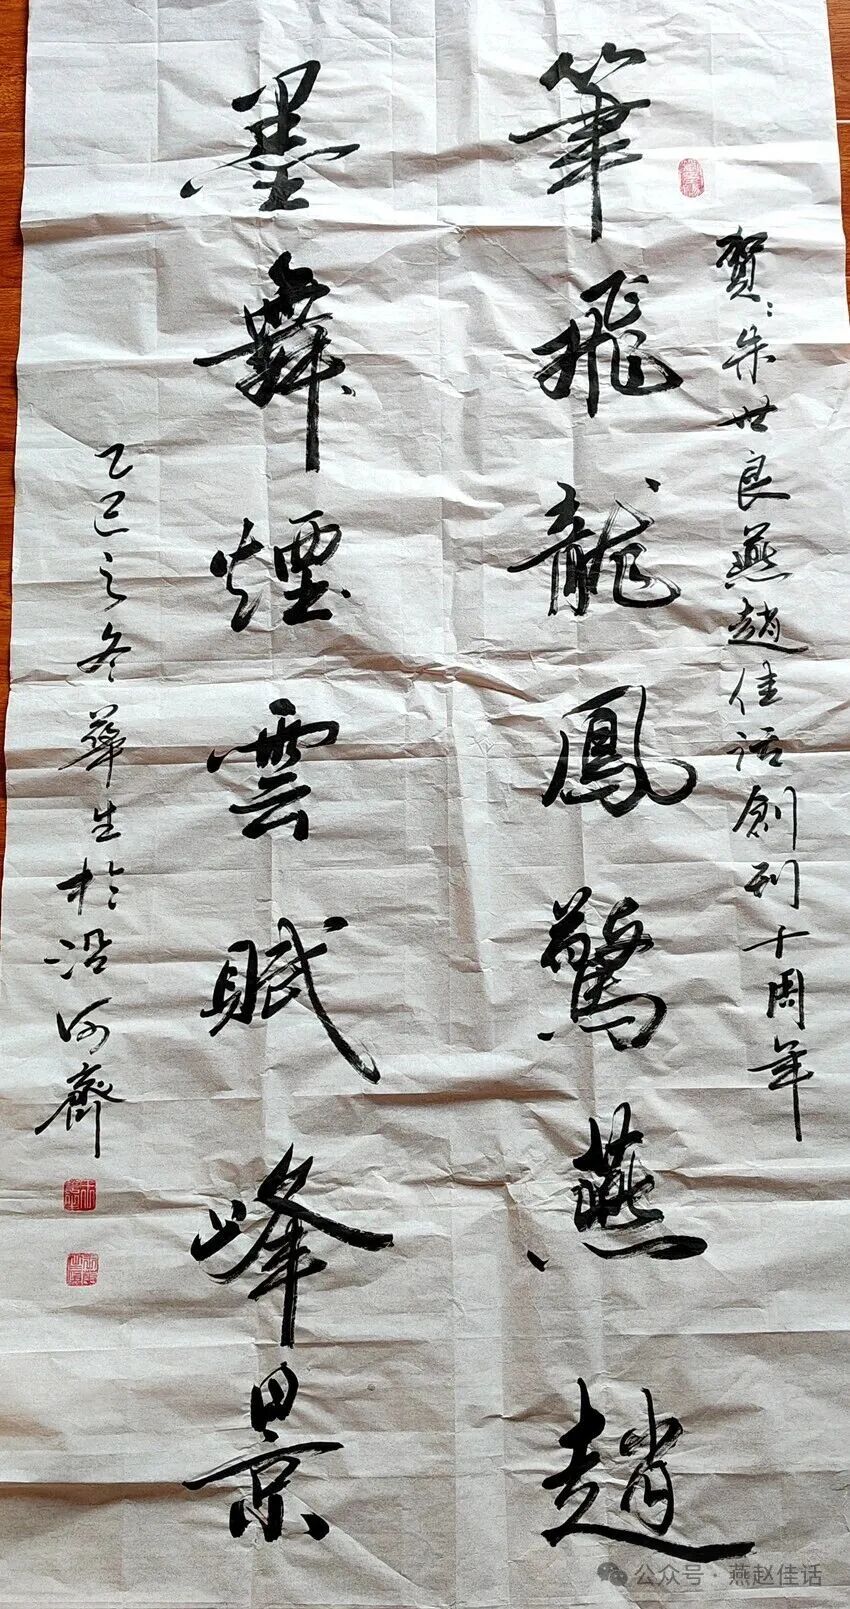 賀：朱世良燕趙佳话創刊十周年
筆飛龍鳳驚燕趙
墨舞煙雲賦峰景
乙巳之冬華生於沿河齋
公众号·燕赵佳话